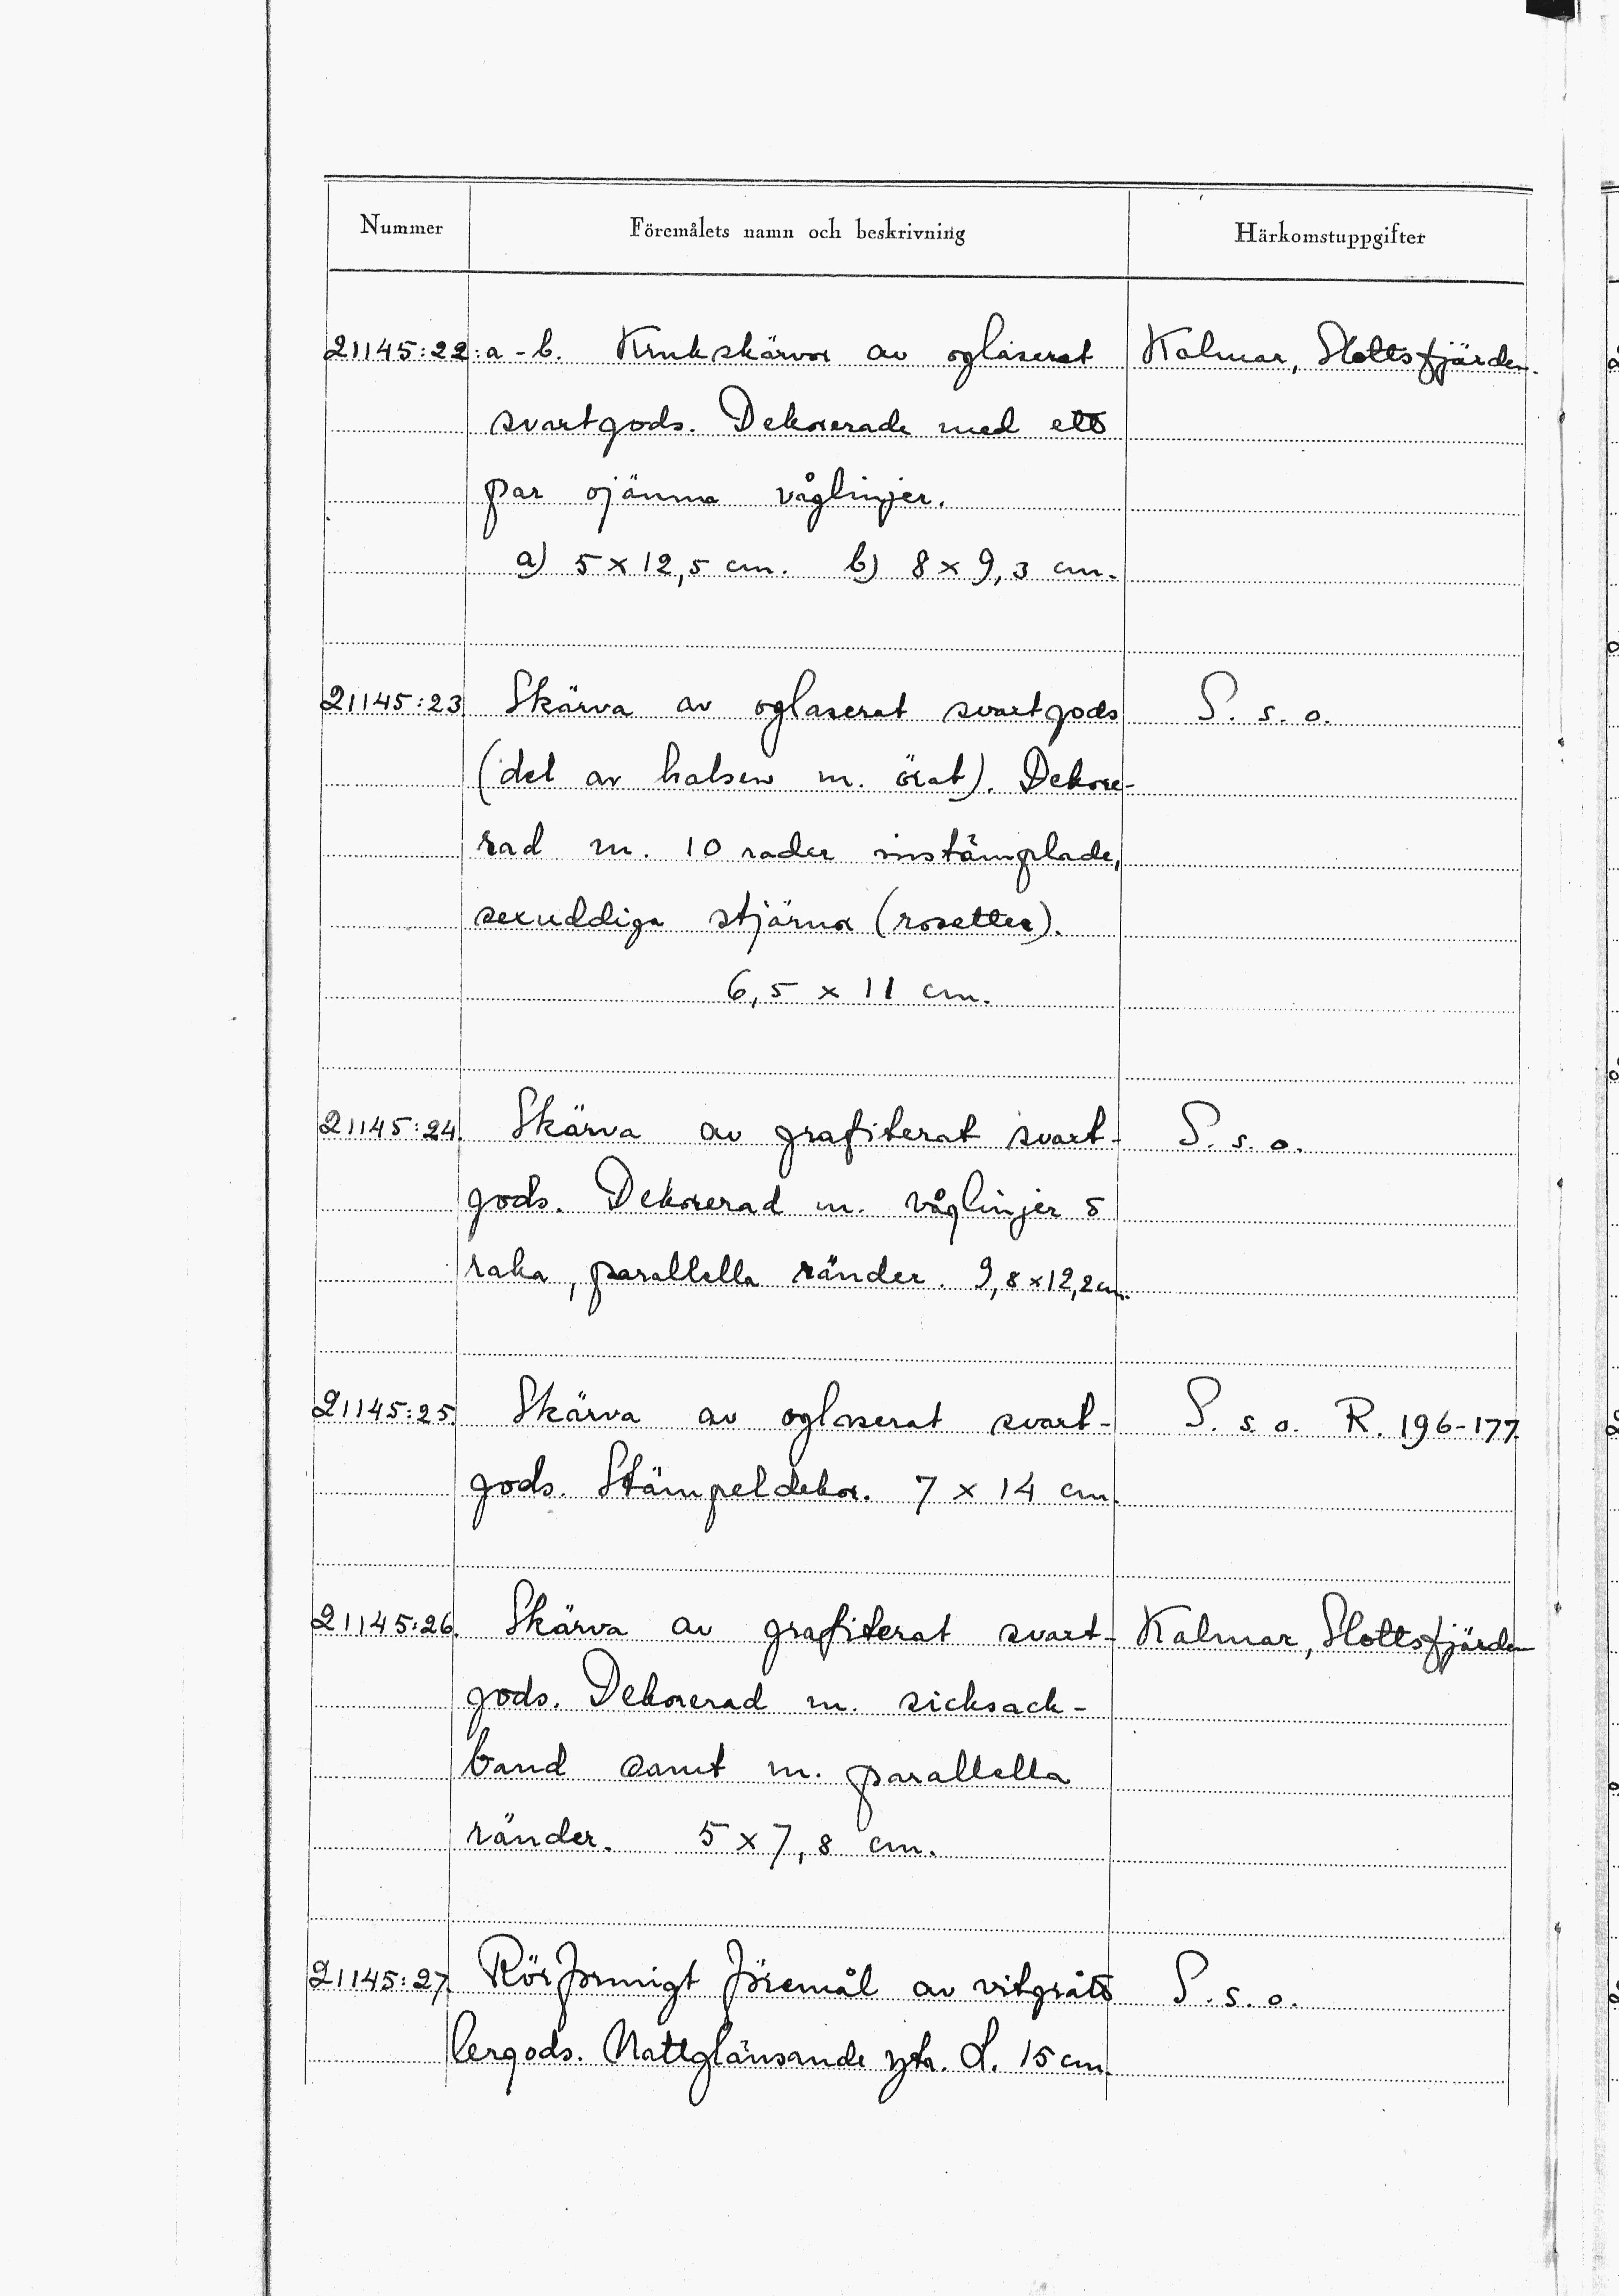 Nummer Föremålets namn och beskrivning Härkomstuppgifter
21145:22:a-b. Krukskärvor av oglaserat Kalmar, Slottsfjärden.
svartgods. Dekorerade med ett
par ojämna våglinjer.
a) 5 x 12,5 cm. b) 8 x 9,3 cm.
21145:23. Skärva av oglaserat svartgods S. s. o.
(del av halsen m. örat). Dekore-
rad m. 10 rader instämplade,
sexuddiga stjärnor (rosetter).
6,5 x 11 cm.
21145:24. Skärva av grafiterat svart- S. s. o.
gods. Dekorerad m. våglinjer o
raka, parallella ränder. 9,8 x 12,2 cm.
21145:25. Skärva av oglaserat svart- S. s. o. R. 196-177.
gods. Stämpeldekor. 7 x 14 cm.
21145:26. Skärva av grafiterat svart- Kalmar, Slottsfjärden
gods. Dekorerad m. sicksack-
band samt m. parallella
ränder. 5 x 7,8 cm.
21145:27. Rörformigt föremål av vitgrått S. s. o.
lergods. Mattglänsande yta. L. 15 cm.